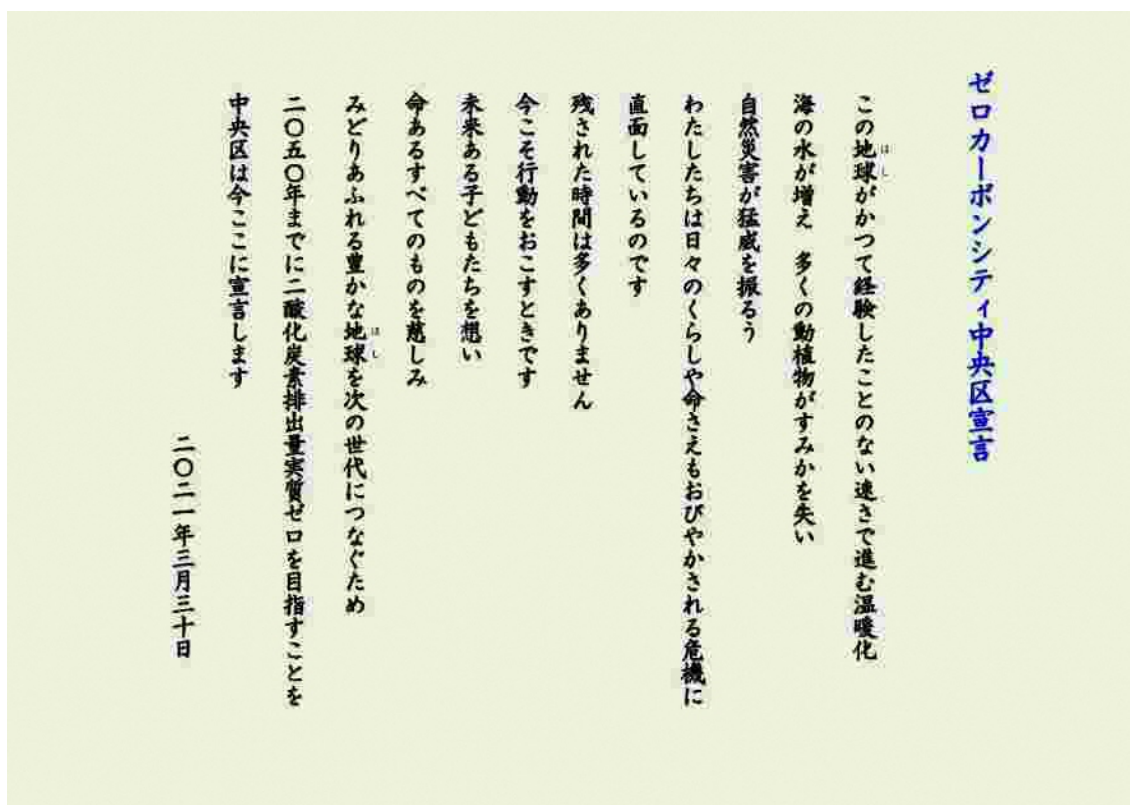 ゼロカーボンシティ中央区宣言
この地球がかつて経験したことのない速さで進む温暖化
はし
海の水が増え　多くの動植物がすみかを失い
自然災害が猛威を振るう
わたしたちは日々のくらしや命さえもおびやかされる危機に
直面しているのです
残された時間は多くありません
今こそ行動をおこすときです
未来ある子どもたちを想い
命あるすべてのものを慈しみ
みどりあふれる豊かな地球を次の世代につなぐため
はし
二〇五〇年までに二酸化炭素排出量実質ゼロを目指すことを
中央区は今ここに宣言します
二〇二一年三月三十日